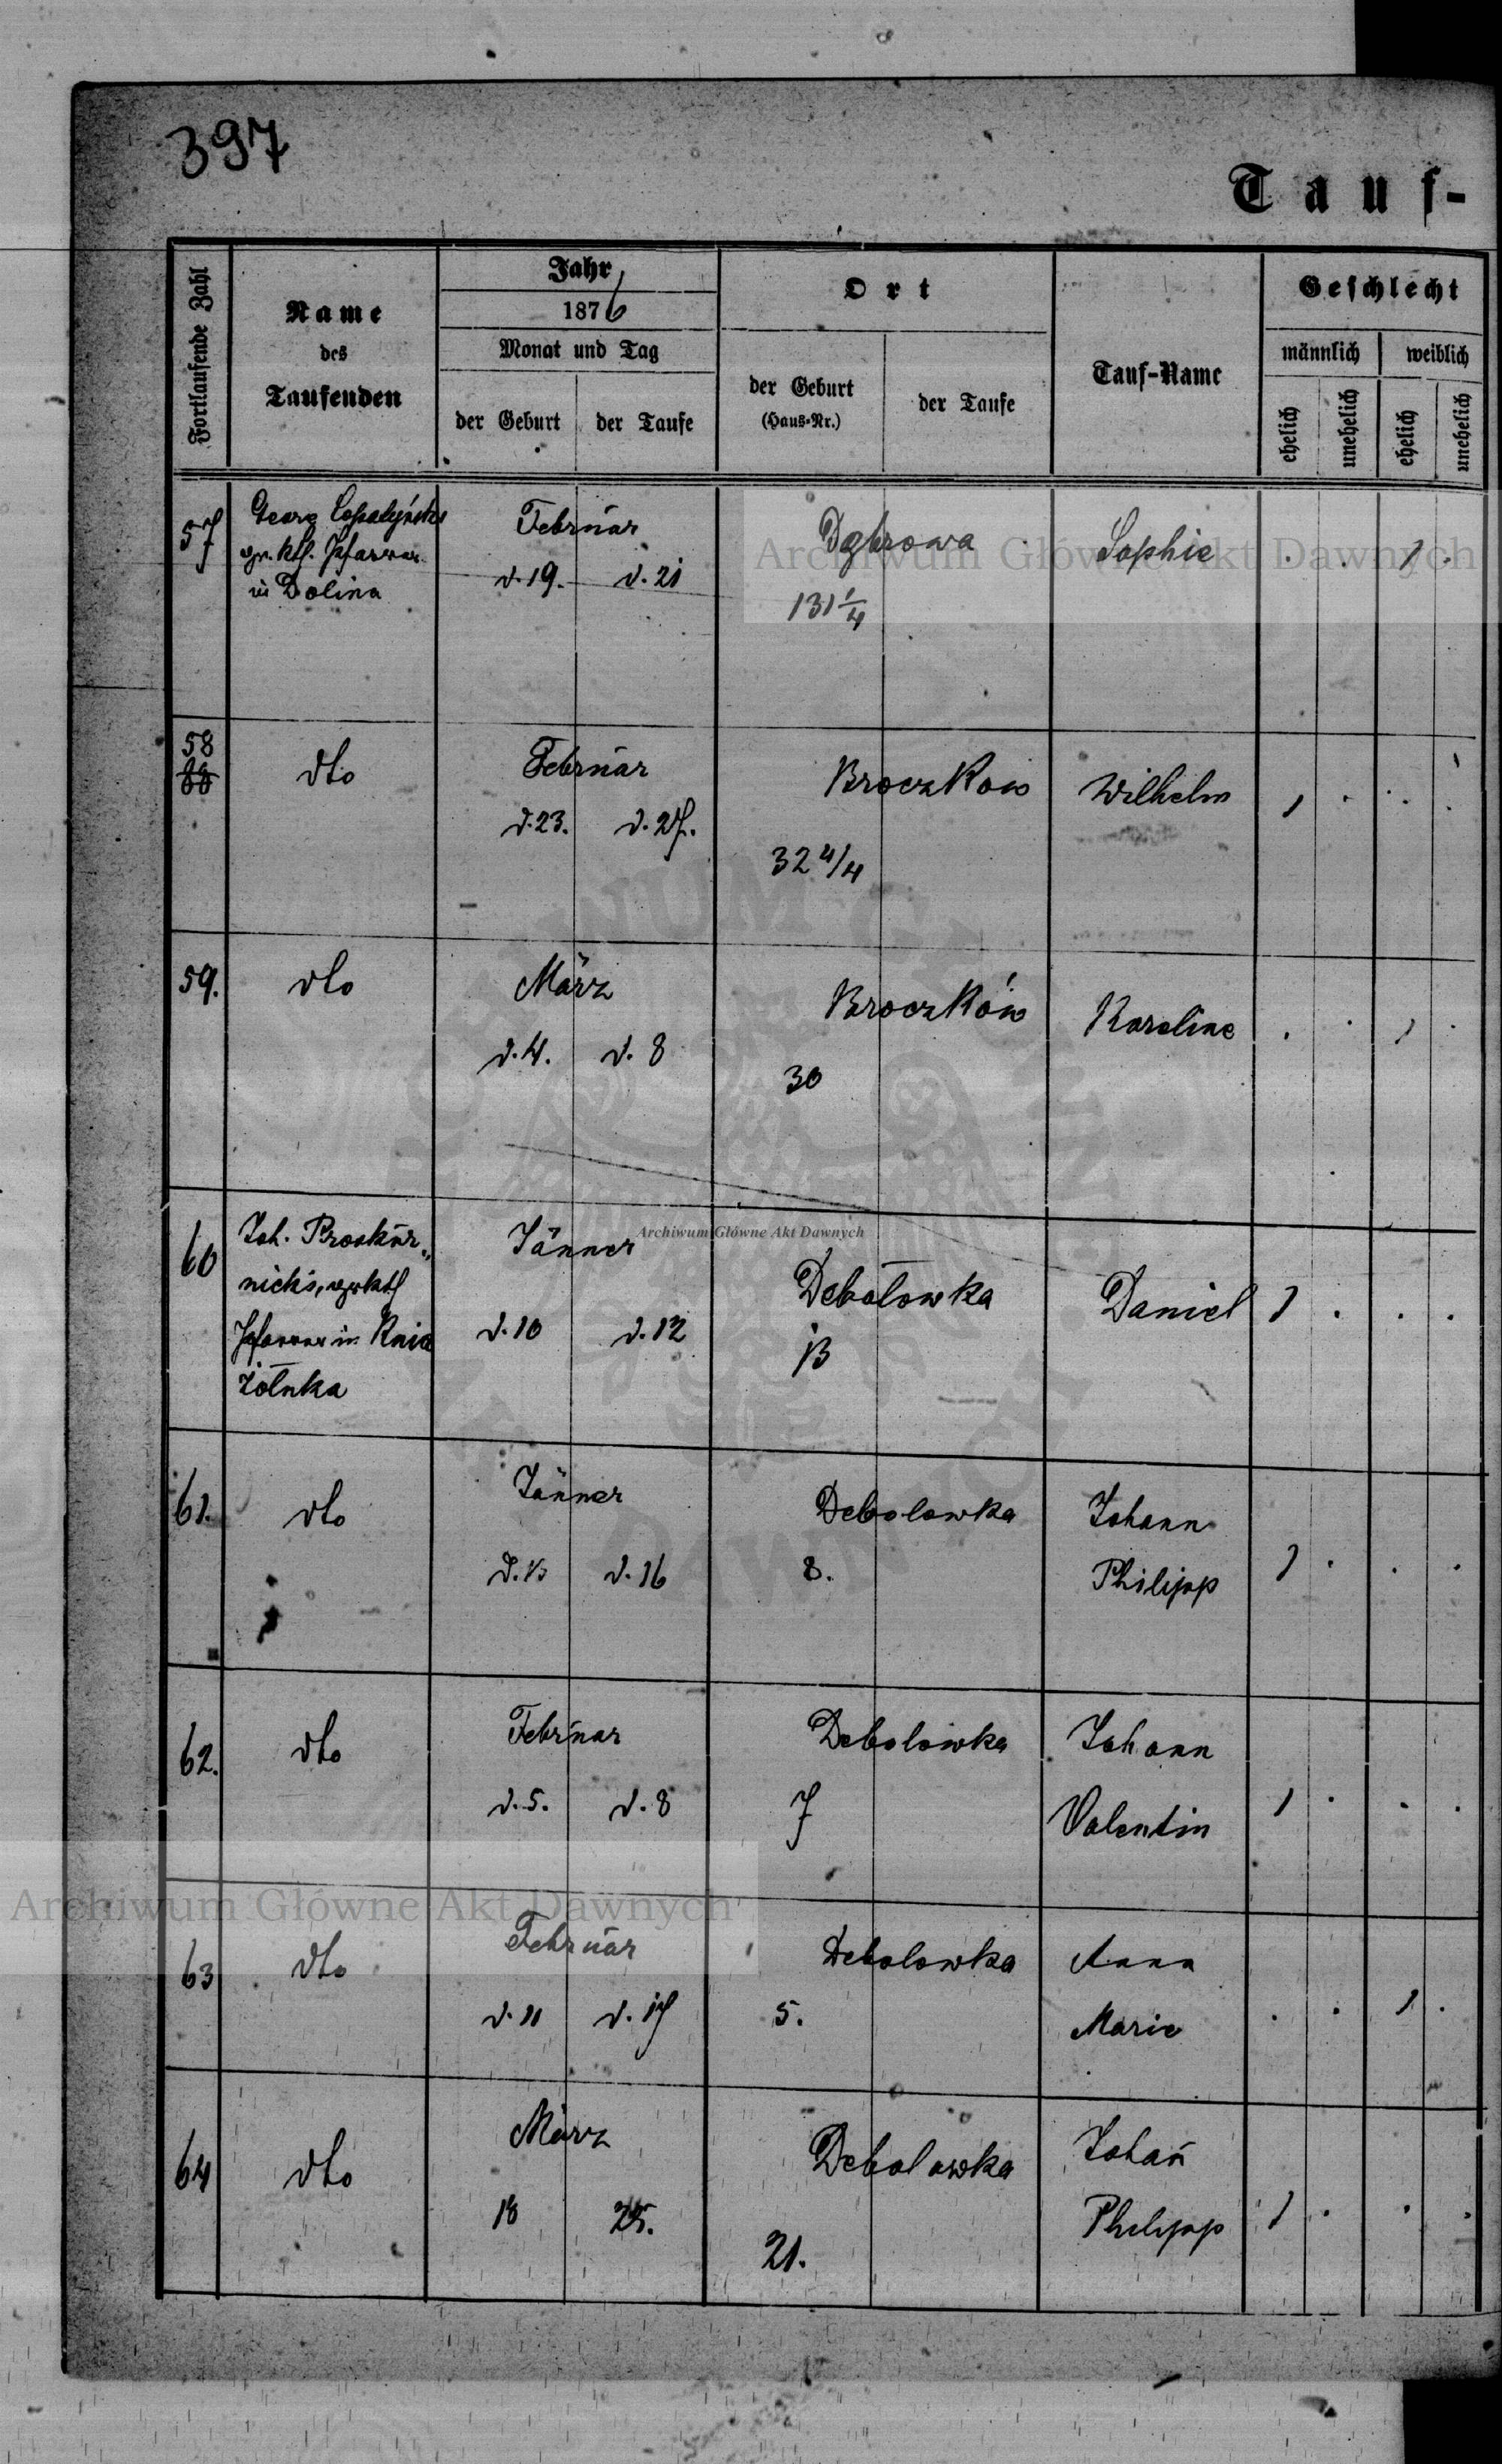 397
Tauf-
Fortlaufende Zahl
Name
des
Taufenden
Jahr
1876
Monat und Tag
der Geburt
der Taufe
Ort
der Geburt
(Haus-Nr.)
der Taufe
Tauf-Name
Geschlecht
männlich
weiblich
ehelich
unehelich
ehelich
unehelich
57
Georg
gr. kth. Pfarrer
in Dolina
Februar
d. 19. d. 21
Dąbrowa
131 1/4
Sophie
. . 1 .
58
dto
Februar
d. 23. d. 27.
Broczkow
32 4/4
Wilhelm
1 . . .
59.
dto
März
d. 4. d. 8
Broczków
30
Karoline
. . 1 .
60
Joh. Proskur-
nicki, gr kth
Pfarrer in Knia
żołuka
Jänner
d. 10 d. 12
Debołowka
13
Daniel
1 . . .
61.
dto
Jänner
d. 13 d. 16
Debolowka
8.
Johann
Philipp
1 . . .
62.
dto
Februar
d. 5. d. 8
Debolowka
7
Johann
Valentin
1 . . .
63
dto
Februar
d. 11 d. 17
Debolowka
5.
Anna
Marie
. . 1 .
64
dto
März
18 25.
Debolowka
21.
Johan̄
Philipp
1 . . .
Archiwum Główne Akt Dawnych
Archiwum Główne Akt Dawnych
Archiwum Główne Akt Dawnych